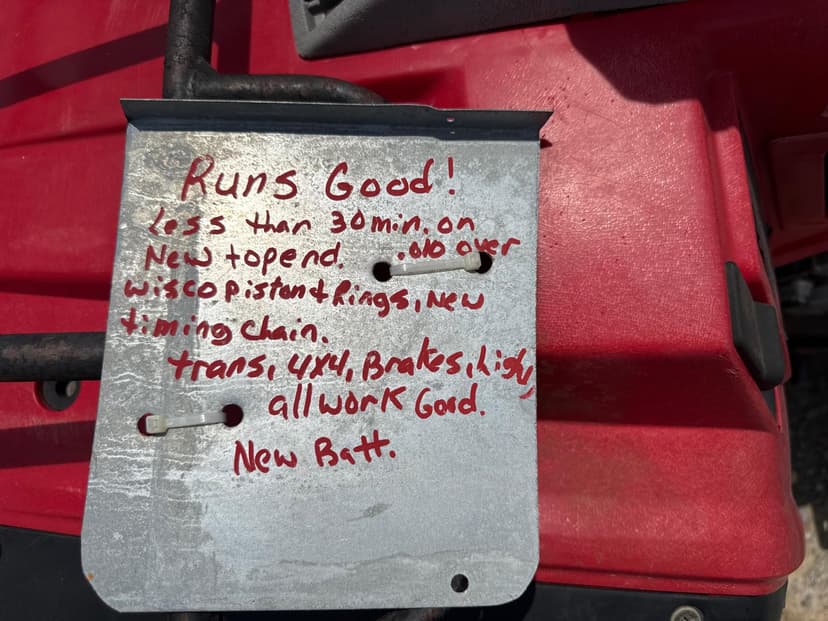 Runs Good!
Less than 30 min. on
New topend. .010 over
wisco piston & Rings, New
timing chain.
trans, 4x4, Brakes,
all work Good.
New Batt.